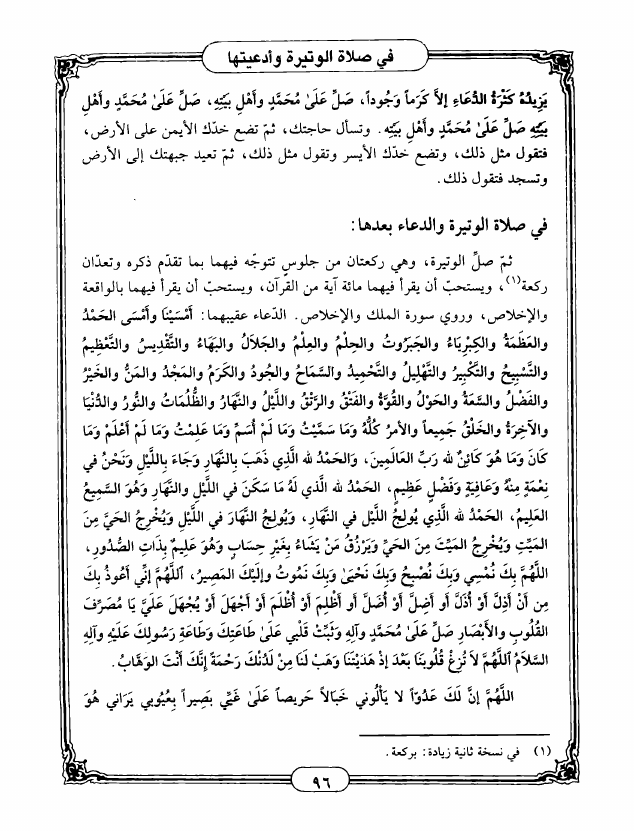 في صلاة الوتيرة وأدعيتها
يَزِيدُهُ كَثْرَةُ الدُّعَاءِ إلاَّ كَرَماً وَجُوداً، صَلِّ عَلَىٰ مُحَمَّدٍ وأَهْلِ بَيْتِهِ، صَلِّ عَلَىٰ مُحَمَّدٍ وأَهْلِ
بَيْتِهِ صَلِّ عَلَىٰ مُحَمَّدٍ وأَهْلِ بَيْتِهِ. وتسأل حاجتك، ثمّ تضع خدّك الأيمن على الأرض،
فتقول مثل ذلك، وتضع خدّك الأيسر وتقول مثل ذلك، ثمّ تعيد جبهتك إلى الأرض
وتسجد فتقول ذلك.
في صلاة الوتيرة والدعاء بعدها:
ثمّ صلِّ الوتيرة، وهي ركعتان من جلوسٍ تتوجّه فيهما بما تقدّم ذكره وتعدّان
ركعة(١)، ويستحبّ أن يقرأ فيهما مائة آية من القرآن، ويستحبّ أن يقرأ فيهما بالواقعة
والإخلاص، وروي سورة الملك والإخلاص. الدّعاء عقيبهما: أَمْسَيْنَا وأَمْسَى الحَمْدُ
والعَظَمَةُ والكِبْرِيَاءُ والجَبَرُوتُ والحِلْمُ والعِلْمُ والجَلاَلُ والبَهَاءُ والتَّقْدِيسُ والتَّعْظِيمُ
والتَّسْبِيحُ والتَّكْبِيرُ والتَّهْلِيلُ والتَّحْمِيدُ والسَّمَاحُ والجُودُ والكَرَمُ والمَجْدُ والمَنُّ والخَيْرُ
والفَضْلُ والسَّعَةُ والحَوْلُ والقُوَّةُ والفَتْقُ والرَّتْقُ واللَّيْلُ والنَّهَارُ والظُّلُمَاتُ والنُّورُ والدُّنْيَا
والآخِرَةُ والخَلْقُ جَمِيعاً والأمْرُ كُلُّهُ وَمَا سَمَّيْتُ وَمَا لَمْ أُسَمِّ وَمَا عَلِمْتُ وَمَا لَمْ أَعْلَمْ وَمَا
كَانَ وَمَا هُوَ كَائِنٌ لله رَبِّ العَالَمِينَ، وَالحَمْدُ لله الَّذِي ذَهَبَ بِالنَّهَارِ وَجَاءَ بِاللَّيْلِ وَنَحْنُ في
نِعْمَةٍ مِنْهُ وَعَافِيَةٍ وَفَضْلٍ عَظِيمٍ، الحَمْدُ لله الَّذي لَهُ مَا سَكَنَ في اللَّيْلِ والنَّهَارِ وَهُوَ السَّمِيعُ
العَلِيمُ، الحَمْدُ لله الَّذِي يُولِجُ اللَّيْلَ في النَّهَارِ، وَيُولِجُ النَّهَارَ في اللَّيْلِ وَيُخْرِجُ الحَيَّ مِنَ
المَيِّتِ وَيُخْرِجُ المَيِّتَ مِنَ الحَيِّ وَيَرْزُقُ مَنْ يَشَاءُ بِغَيْرِ حِسَابٍ وَهُوَ عَلِيمٌ بِذَاتِ الصُّدُورِ،
اللَّهُمَّ بِكَ نُمْسِي وَبِكَ نُصْبِحُ وَبِكَ نَحْيَىٰ وَبِكَ نَمُوتُ وإلَيْكَ المَصِيرُ، اَللَّهُمَّ إنِّي أَعُوذُ بِكَ
مِن أَنْ أَذِلَّ أَوْ أُذَلَّ أَو أَضِلَّ أَوْ أُضَلَّ أَو أَظْلِمَ أَوْ أُظْلَمَ أَوْ أَجْهَلَ أَوْ يُجْهَلَ عَلَيَّ يَا مُصَرِّفَ
القُلُوبِ والأبْصَارِ صَلِّ عَلَىٰ مُحَمَّدٍ وَآلِهِ وَثَبِّتْ قَلْبي عَلَىٰ طَاعَتِكَ وَطَاعَةِ رَسُولِكَ عَلَيْهِ وَآلِهِ
السَّلاَمُ اَللَّهُمَّ لاَ تُزِغْ قُلُوبَنَا بَعْدَ إذْ هَدَيْتَنَا وَهَبْ لَنَا مِنْ لَدُنْكَ رَحْمَةً إنَّكَ أَنْتَ الوَهَّابُ.
اللَّهُمَّ إنَّ لَكَ عَدُوّاً لا يَأْلُوني خَبَالاً حَرِيصاً عَلَىٰ غَيِّي بَصِيراً بِعُيُوبِي يَرَانِي هُوَ
(١) في نسخة ثانية زيادة: بركعة.
٩٦